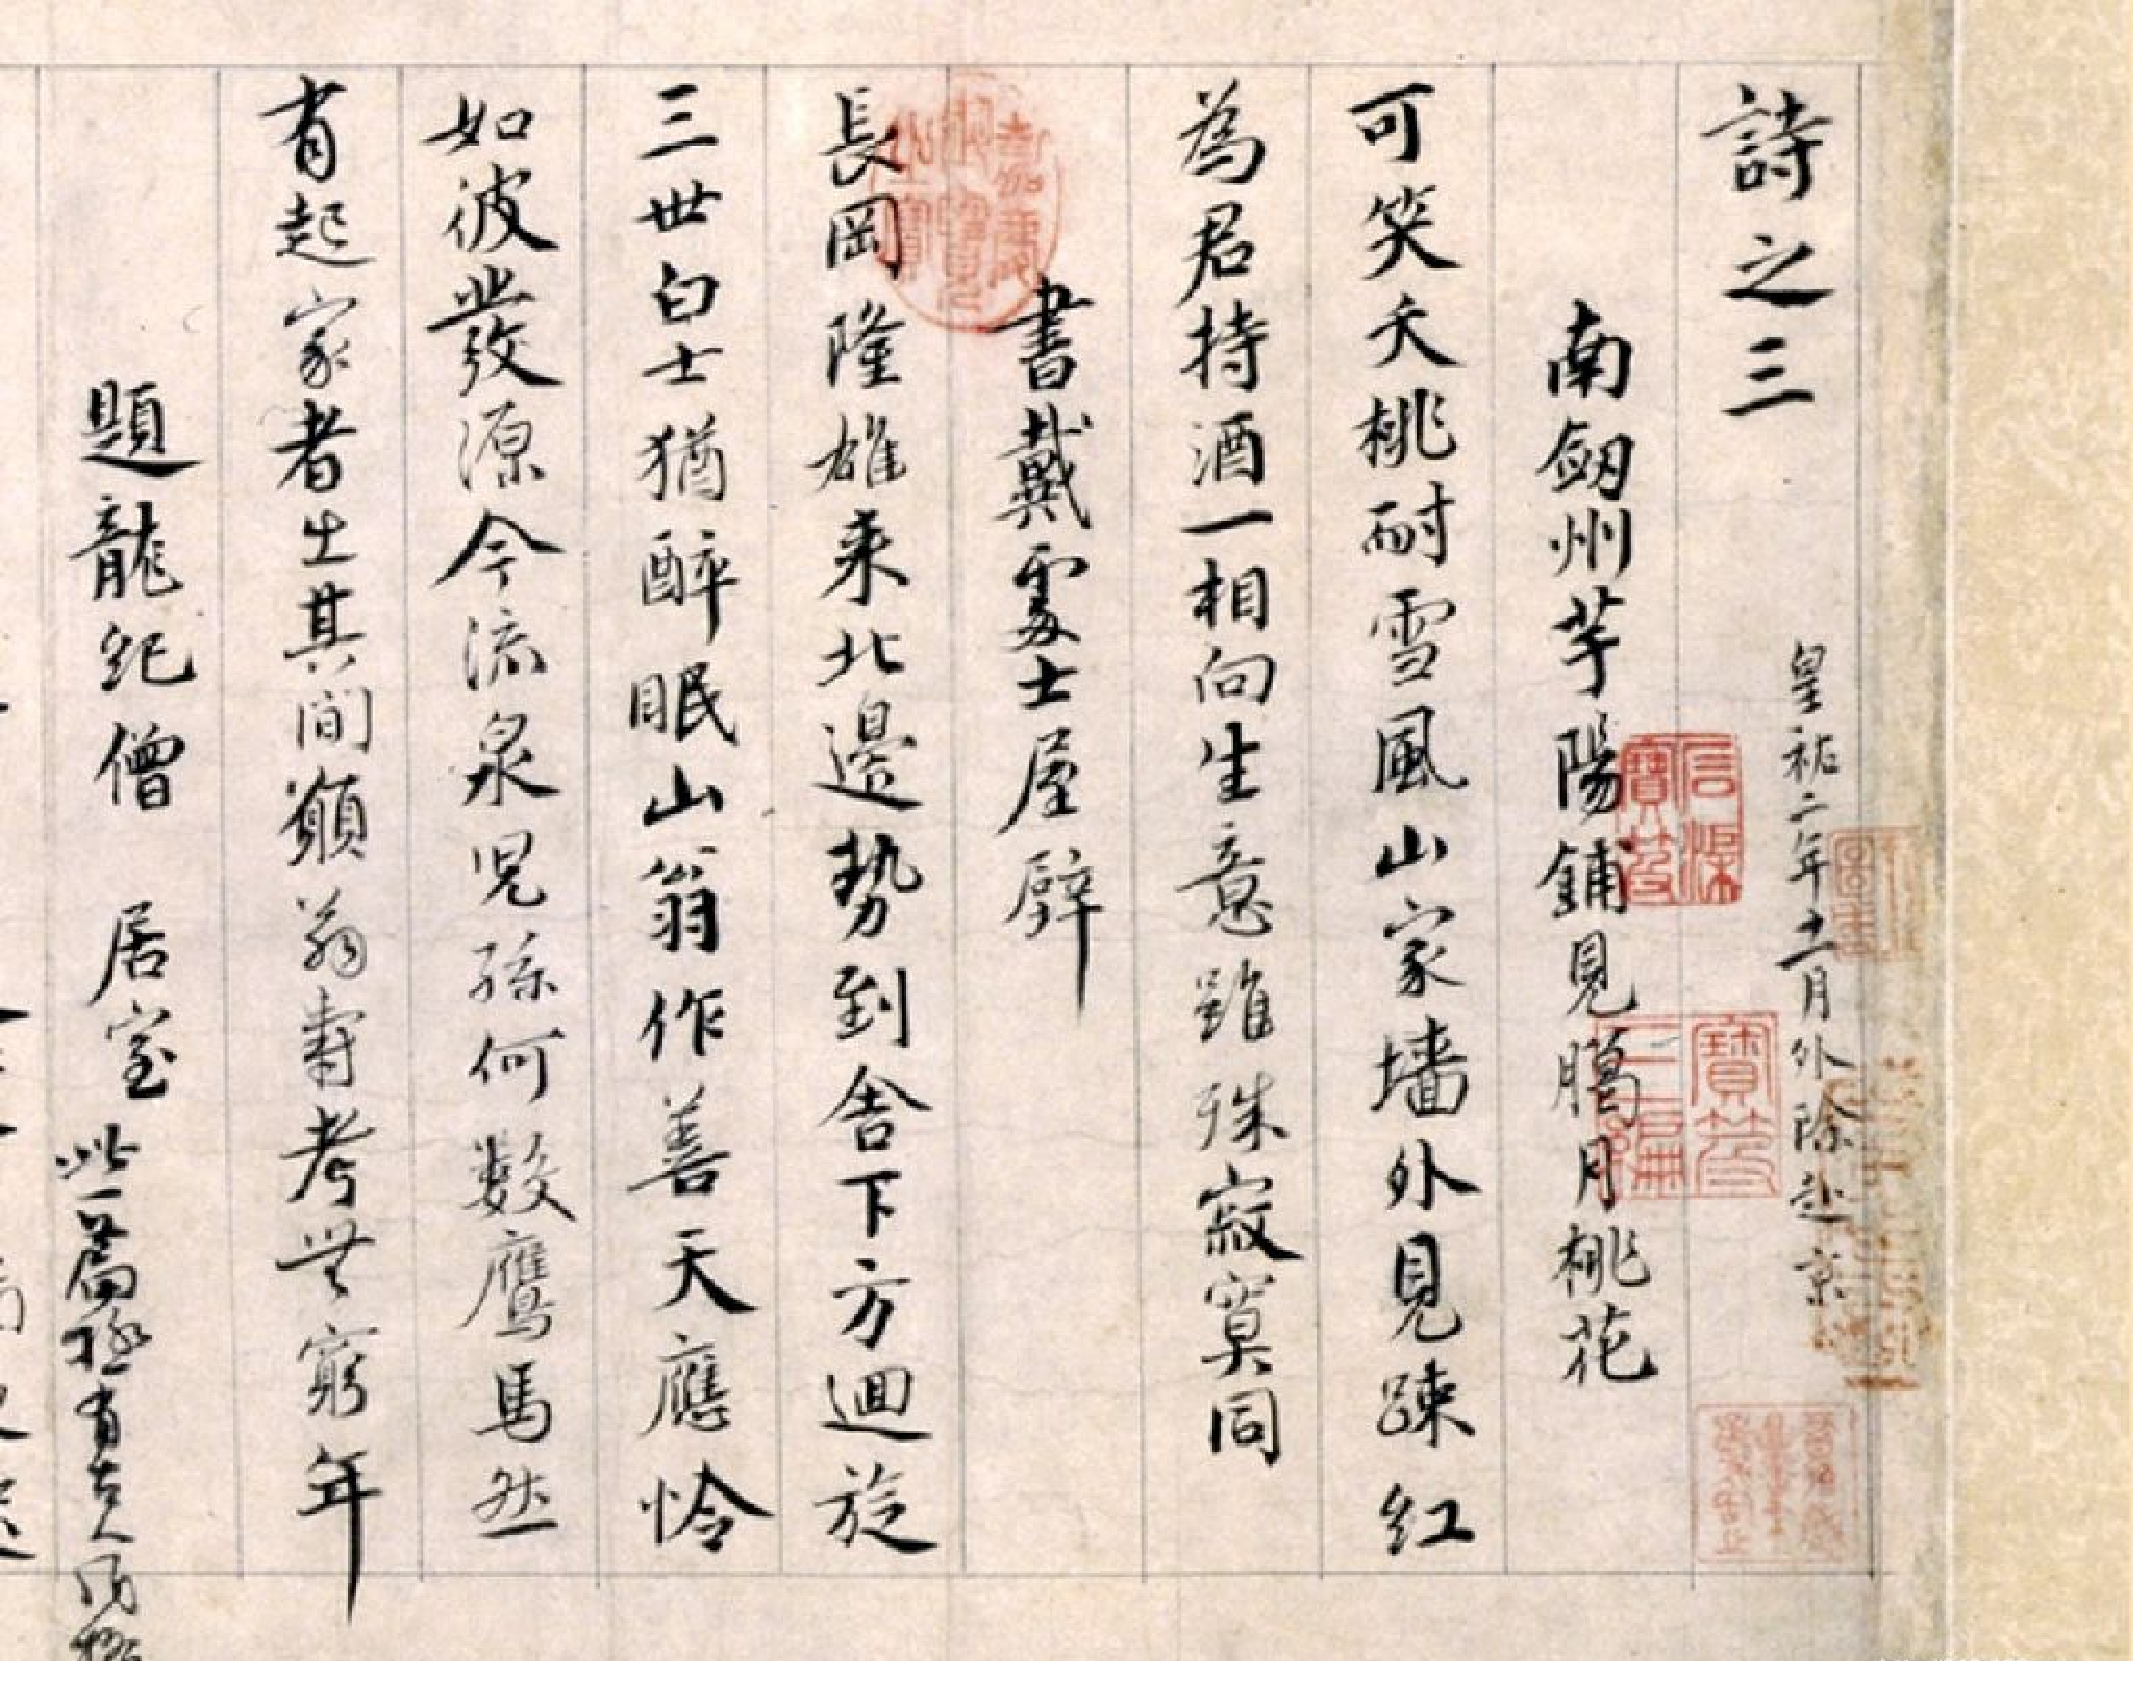 詩之三
皇祐二年十一月外除赴京
南劒州芋陽鋪見臈月桃花
可笑夭桃耐雪風山家墻外見踈紅
為君持酒一相向生意雖殊寂寞同
書戴處士屋壁
長岡隆雄来北邉勢到舎下方迴旋
三世白士猶醉眠山翁作善天應怜
如彼發源今流泉児孫何數鷹馬然
有起家者出其間願翁壽考無窮年
題龍紀僧居室 此一篇極有古人風格